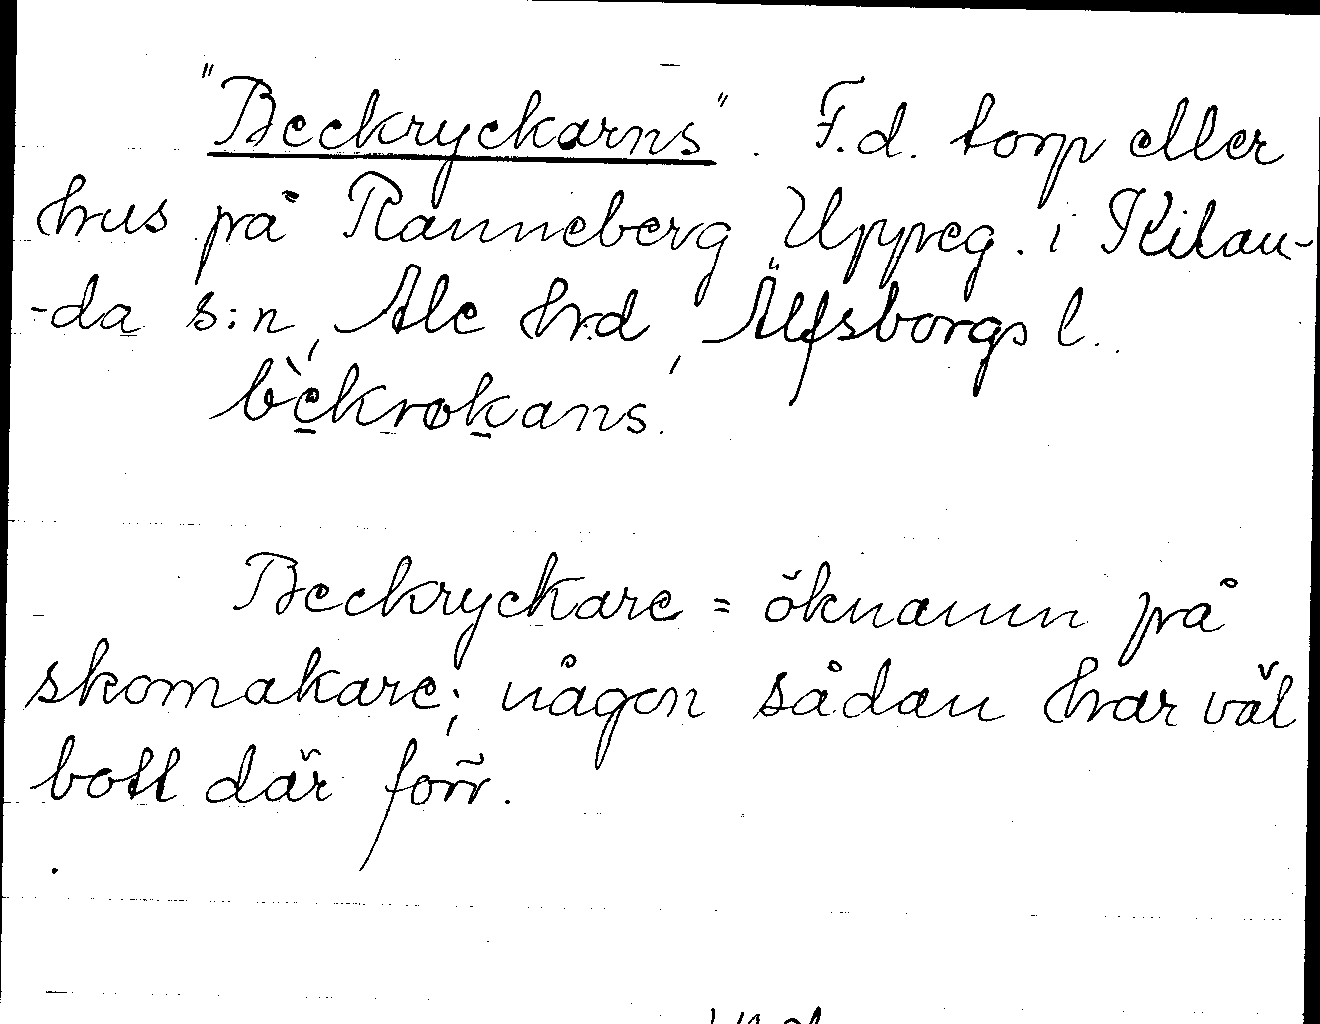 "Beckryckarns". F.d. torp eller
hus på Ranneberg Uppeg. i Kilan-
-da s:n, Ale hrd, Älfsborgs l.
bèkrøkans.
Beckryckare = öknamn på
skomakare; någon sådan har väl
bott där förr.